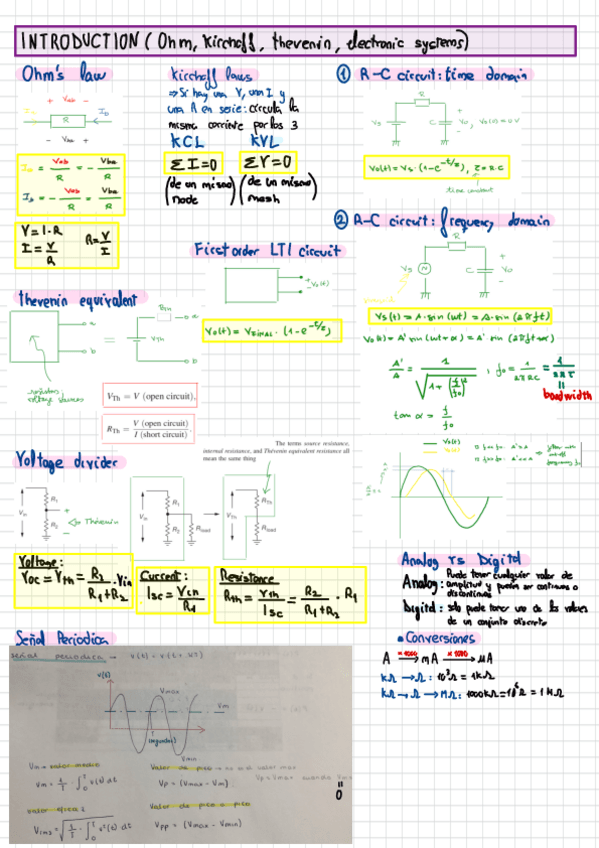 INTRODUCTION (Ohm, Kirchoff, thevenin, electronic systems)
Ohm's law
+ Vab -
R
- Vba +
I = Vab/R = - Vba/R
I = - Vab/R = Vba/R
V = I · R
I = V/R
R = V/I
Kirchoff laws
⇒ Si hay una V, una I y
una R en serie: circula la
misma corriente por los 3
KCL KVL
ΣI=0 ΣV=0
(de un mismo node) (de un mismo mesh)
① R-C circuit: time domain
R
Vs C Vo, Vo(0) = 0V
Vo(t) = Vs · (1-e^-t/τ), τ = R·C
time constant
② R-C circuit: frequency domain
R
Vs C Vo
Vs(t) = A·sin(ωt) = A·sin(2πft)
Vo(t) = A'·sin(ωt+α) = A'·sin(2πft+α)
A'/A = 1/√(1+(f/fo)²), fo = 1/2πRC = 1/2πτ
bandwidth
tan α = f/fo
First order LTI circuit
+
Vo(t)
-
Vo(t) = VFINAL · (1-e^-t/τ)
thevenin equivalent
a
b
=
RTh
VTh
a
b
resistors
voltage sources
VTh = V (open circuit),
RTh = V (open circuit) / I (short circuit)
The terms source resistance,
internal resistance, and Thévenin equivalent resistance all
mean the same thing
Voltage divider
Vin R1 R2
⇐ Thévenin
Vin R1 R2 Rload
RTh VTh Rload
Voltage:
Voc = Vth = R2/(R1+R2) · Vin
Current:
Isc = Vin/R1
Resistance
Rth = Vth/Isc = R2/(R1+R2) · R1
Vs(t)
Vo(t)
Analog vs Digital
Analog: Puede tener cualquier valor de
amplitud y pueden ser continuas o
discontinuas
Digital: solo puede tener uno de los valores
de un conjunto discreto
Señal Periodica
señal periodica → v(t) = v(t + kT)
v(t)
Vmax
Vm
t(segundos)
Vmin
Vm = valor medio
Vm = 1/T · ∫₀ᵀ v(t) dt
Valor de pico → no es el valor max
Vp = (Vmax - Vm)
Vp = Vmax cuando Vm
=
0
valor eficaz
Vrms = √(1/T · ∫₀ᵀ v²(t) dt)
Valor de pico a pico
Vpp = (Vmax - Vmin)
• Conversiones
A ×1000→ mA ×1000→ μA
kΩ → Ω: 10³Ω = 1kΩ
kΩ → Ω → MΩ: 1000kΩ = 10⁶Ω = 1MΩ